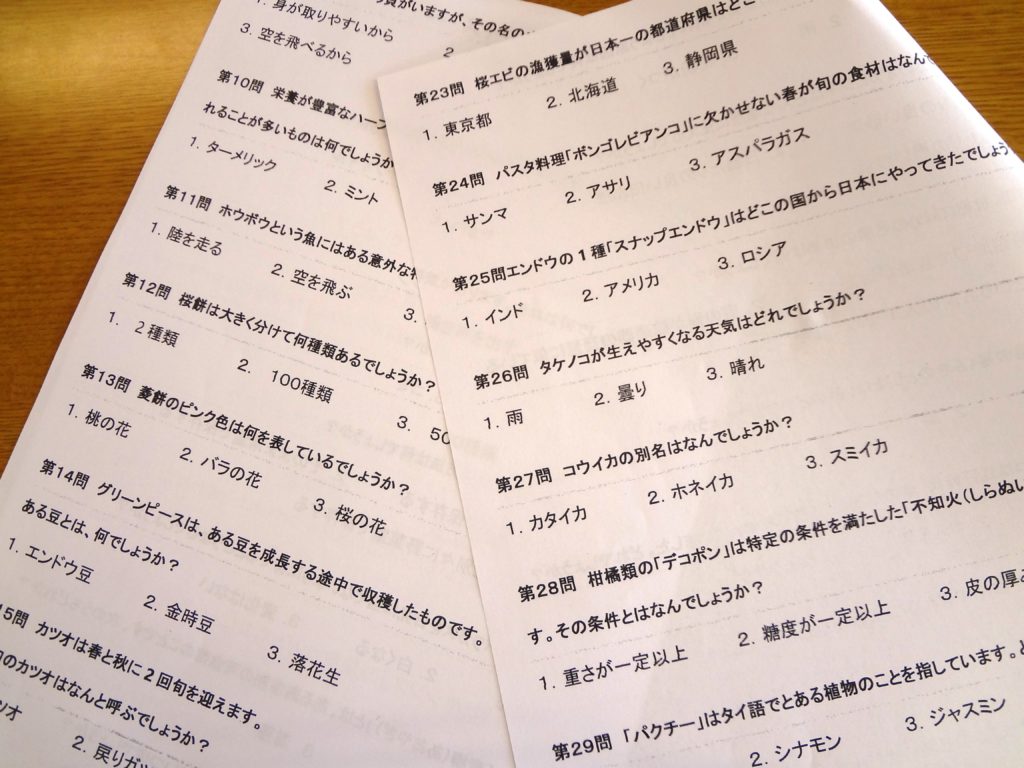 がいますが、その名の
1. 身が取りやすいから
2
3. 空を飛べるから
第10問 栄養が豊富なハーブ
れることが多いものは何でしょうか
1. ターメリック 2. ミント
第11問 ホウボウという魚にはある意外な特
1. 陸を走る 2. 空を飛ぶ 3.
第12問 桜餅は大きく分けて何種類あるでしょうか?
1. 2種類 2. 100種類 3. 50
第13問 菱餅のピンク色は何を表しているでしょうか?
1. 桃の花 2. バラの花 3. 桜の花
第14問 グリーンピースは、ある豆を成長する途中で収穫したものです。
ある豆とは、何でしょうか?
1. エンドウ豆 2. 金時豆 3. 落花生
15問 カツオは春と秋に2回旬を迎えます。
のカツオはなんと呼ぶでしょうか?
ツオ 2. 戻りガツ
第23問 桜エビの漁獲量が日本一の都道府県はどこ
1. 東京都 2. 北海道 3. 静岡県
第24問 パスタ料理「ボンゴレビアンコ」に欠かせない春が旬の食材はなん
1. サンマ 2. アサリ 3. アスパラガス
第25問エンドウの1種「スナップエンドウ」はどこの国から日本にやってきたでしょう
1. インド 2. アメリカ 3. ロシア
第26問 タケノコが生えやすくなる天気はどれでしょうか?
1. 雨 2. 曇り 3. 晴れ
第27問 コウイカの別名はなんでしょうか?
1. カタイカ 2. ホネイカ 3. スミイカ
第28問 柑橘類の「デコポン」は特定の条件を満たした「不知火(しらぬい
す。その条件とはなんでしょうか?
1. 重さが一定以上 2. 糖度が一定以上 3. 皮の厚さ
第29問 「パクチー」はタイ語でとある植物のことを指しています。と
2. シナモン 3. ジャスミン